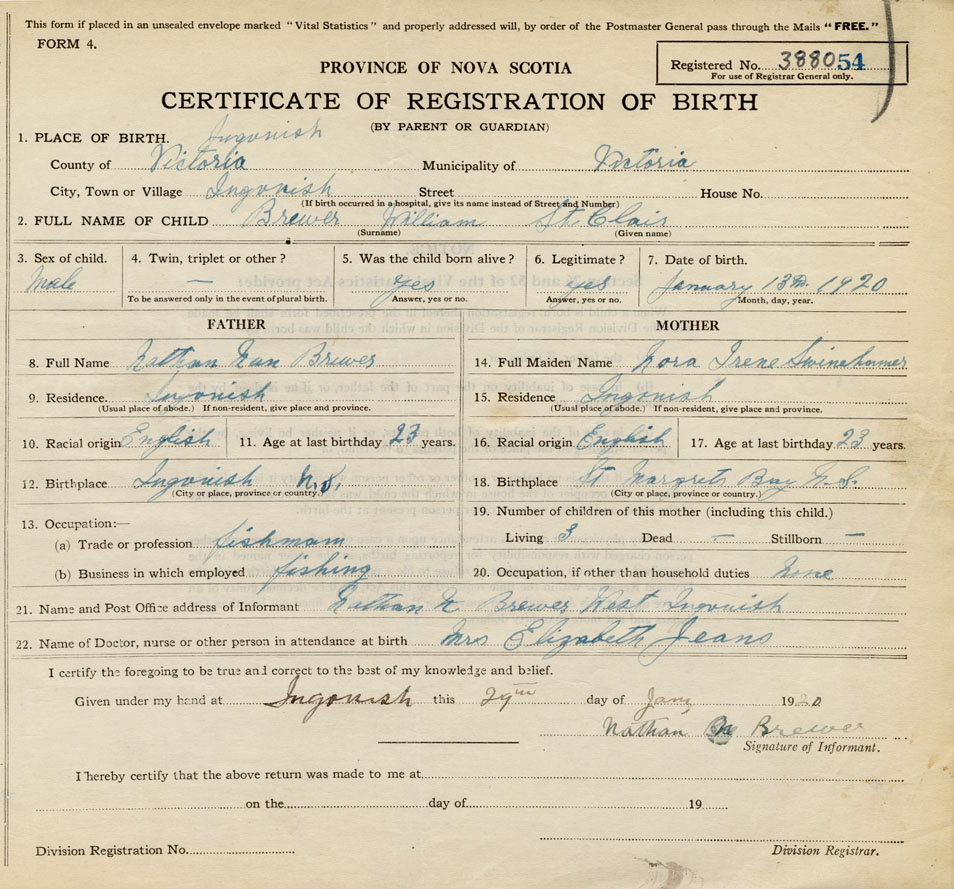 This form if placed in an unsealed envelope marked "Vital Statistics" and properly addressed will, by order of the Postmaster General pass through the Mails "FREE."
FORM 4.
Registered No. 388054
For use of Registrar General only.
PROVINCE OF NOVA SCOTIA
CERTIFICATE OF REGISTRATION OF BIRTH
(BY PARENT OR GUARDIAN)
1. PLACE OF BIRTH. Ingonish
County of Victoria Municipality of Victoria
City, Town or Village Ingonish Street House No.
(If birth occurred in a hospital, give its name instead of Street and Number)
2. FULL NAME OF CHILD Brewer William St Clair
(Surname) (Given name)
3. Sex of child. 4. Twin, triplet or other? 5. Was the child born alive? 6. Legitimate? 7. Date of birth.
Male — Yes yes January 13th 1920
To be answered only in the event of plural birth. Answer, yes or no. Answer, yes or no. Month, day, year.
FATHER MOTHER
8. Full Name Nathan Nan Brewer 14. Full Maiden Name Nora Irene Swinehamer
9. Residence. Ingonish 15. Residence Ingonish
(Usual place of abode.) If non-resident, give place and province. (Usual place of abode.) If non-resident, give place and province.
10. Racial origin English 11. Age at last birthday 23 years. 16. Racial origin English 17. Age at last birthday 23 years.
12. Birthplace Ingonish N.S. 18. Birthplace St Margrets Bay N.S.
(City or place, province or country.) (City or place, province or country.)
13. Occupation:— 19. Number of children of this mother (including this child.)
(a) Trade or profession fishmam Living 3 Dead — Stillborn —
(b) Business in which employed fishing 20. Occupation, if other than household duties None
21. Name and Post Office address of Informant Nathan N Brewer West Ingonish
22. Name of Doctor, nurse or other person in attendance at birth Mrs Elizabeth Jeans
I certify the foregoing to be true and correct to the best of my knowledge and belief.
Given under my hand at Ingonish this 29th day of Jany 1920
Nathan N Brewer
Signature of Informant.
I hereby certify that the above return was made to me at
on the day of 19
Division Registration No. Division Registrar.